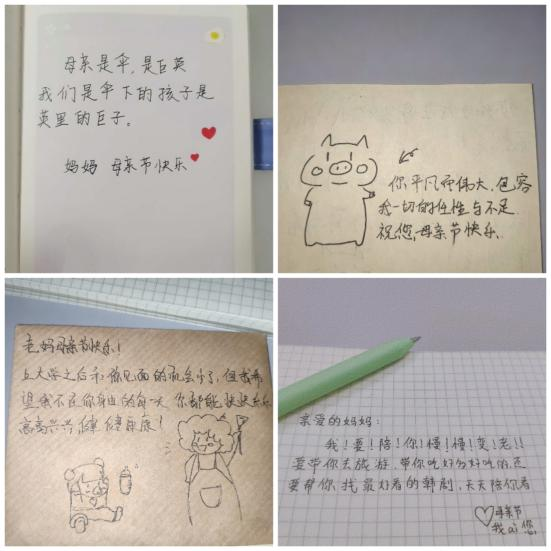 母亲是伞,是豆荚
我们是伞下的孩子是
荚里的豆子。
妈妈 母亲节快乐
你平凡而伟大,包容
我一切的任性与不足
祝您,母亲节快乐.
老妈母亲节快乐!
上大学之后和你见面的机会少了,但我希
望我不在你身边的每一天 你都能快快乐乐
高高兴兴,健健康康!
亲爱的妈妈:
我!要!陪!你!慢!慢!变!老!!
要带你去旅游,带你吃好多好吃的,还
要帮你找最好看的韩剧,天天陪你看
母亲节
我ai您